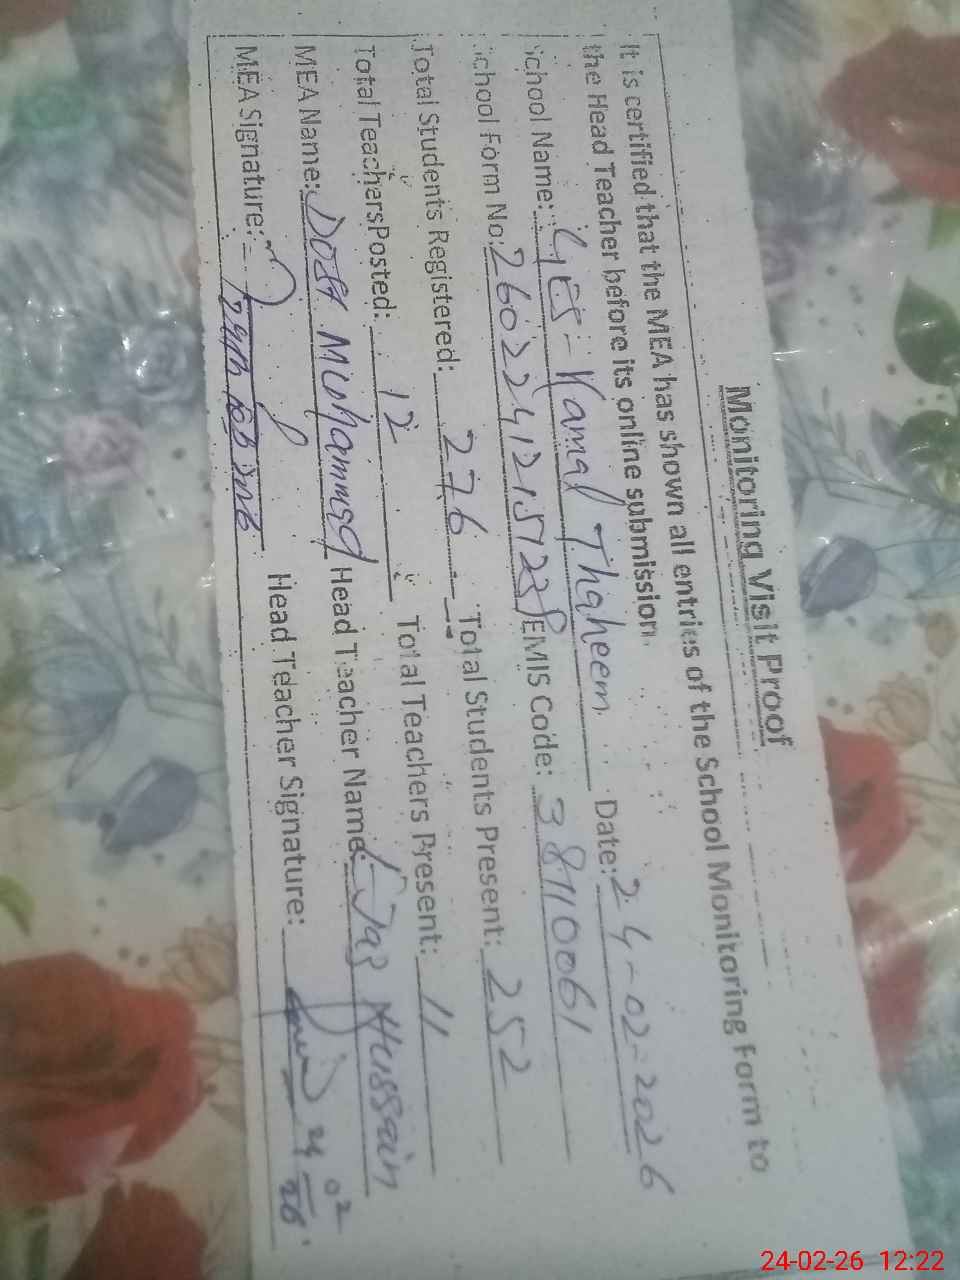 Monitoring Visit Proof
It is certified that the MEA has shown all entries of the School Monitoring Form to
the Head Teacher before its online submission.
School Name: GES-Kamal Thaheem Date: 24-02-2026
School Form No: EMIS Code: 38110061
Total Students Registered: 276 Total Students Present: 252
Total Teachers Posted: 12 Total Teachers Present: 11
MEA Name: Dost Muhammad Head Teacher Name: Ijaz Hussain
MEA Signature: 24th Feb 2026 Head Teacher Signature: 24 02 26
24-02-26 12:22